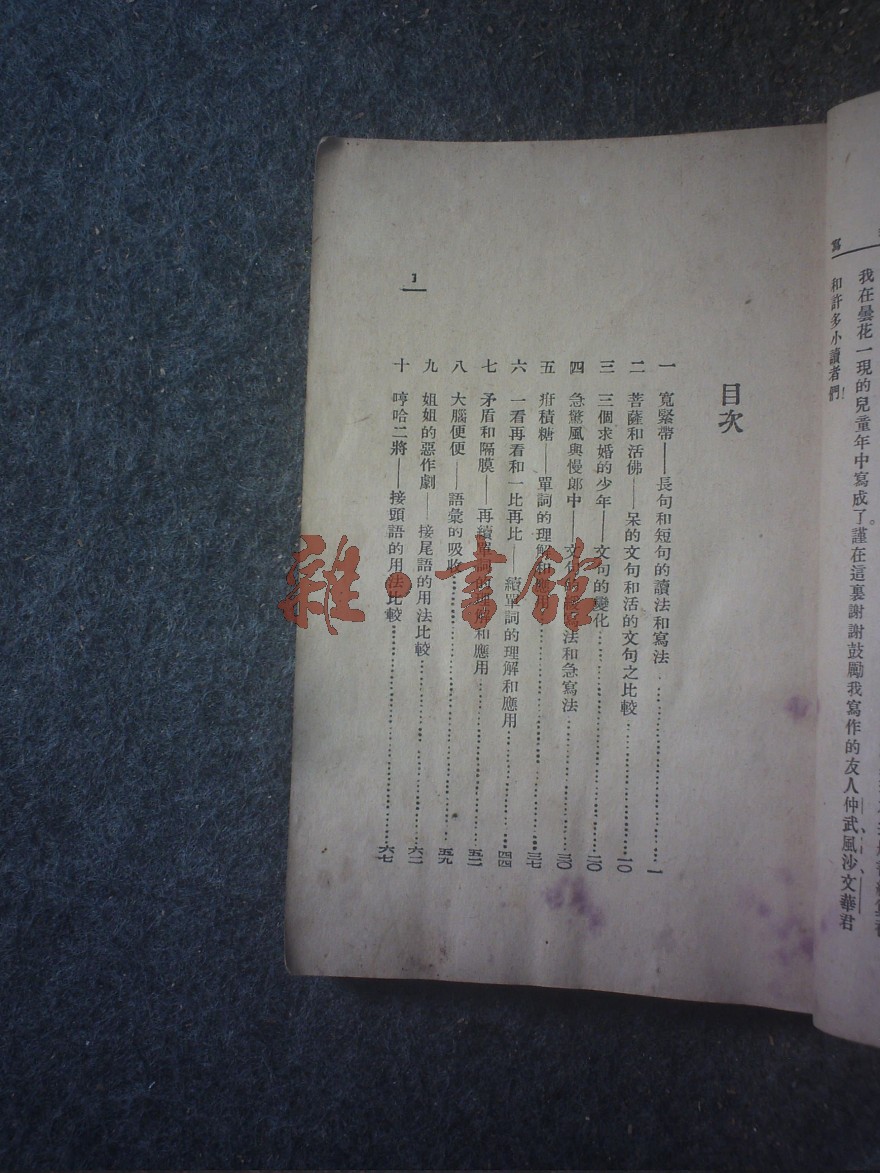 寫
我在曇花一現的兒童年中寫成了。謹在這裏謝謝鼓勵我寫作的友人仲武、風沙、文華君
和許多小讀者們！
目次
一 寬緊帶——長句和短句的讀法和寫法……一
二 菩薩和活佛——呆的文句和活的文句之比較……一〇
三 三個求婚的少年——文句的變化……二〇
四 急驚風與慢郎中——文句的緩寫法和急寫法……三〇
五 疳積糖——單詞的理解和應用……三七
六 一看再看和一比再比——續單詞的理解和應用……四四
七 矛盾和隔膜——再續單詞的理解和應用……五二
八 大腦便便——語彙的吸收……五九
九 姐姐的惡作劇——接尾語的用法比較……六二
十 哼哈二將——接頭語的用法比較……六七
1
雜·書館